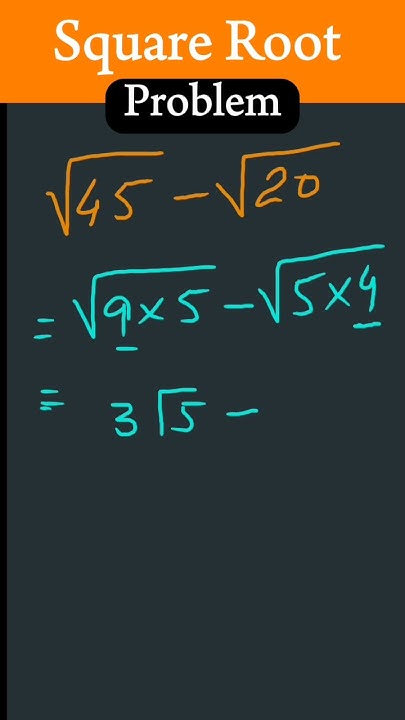 Square Root
Problem
√45 - √20
= √9×5 - √5×4
= 3√5 -